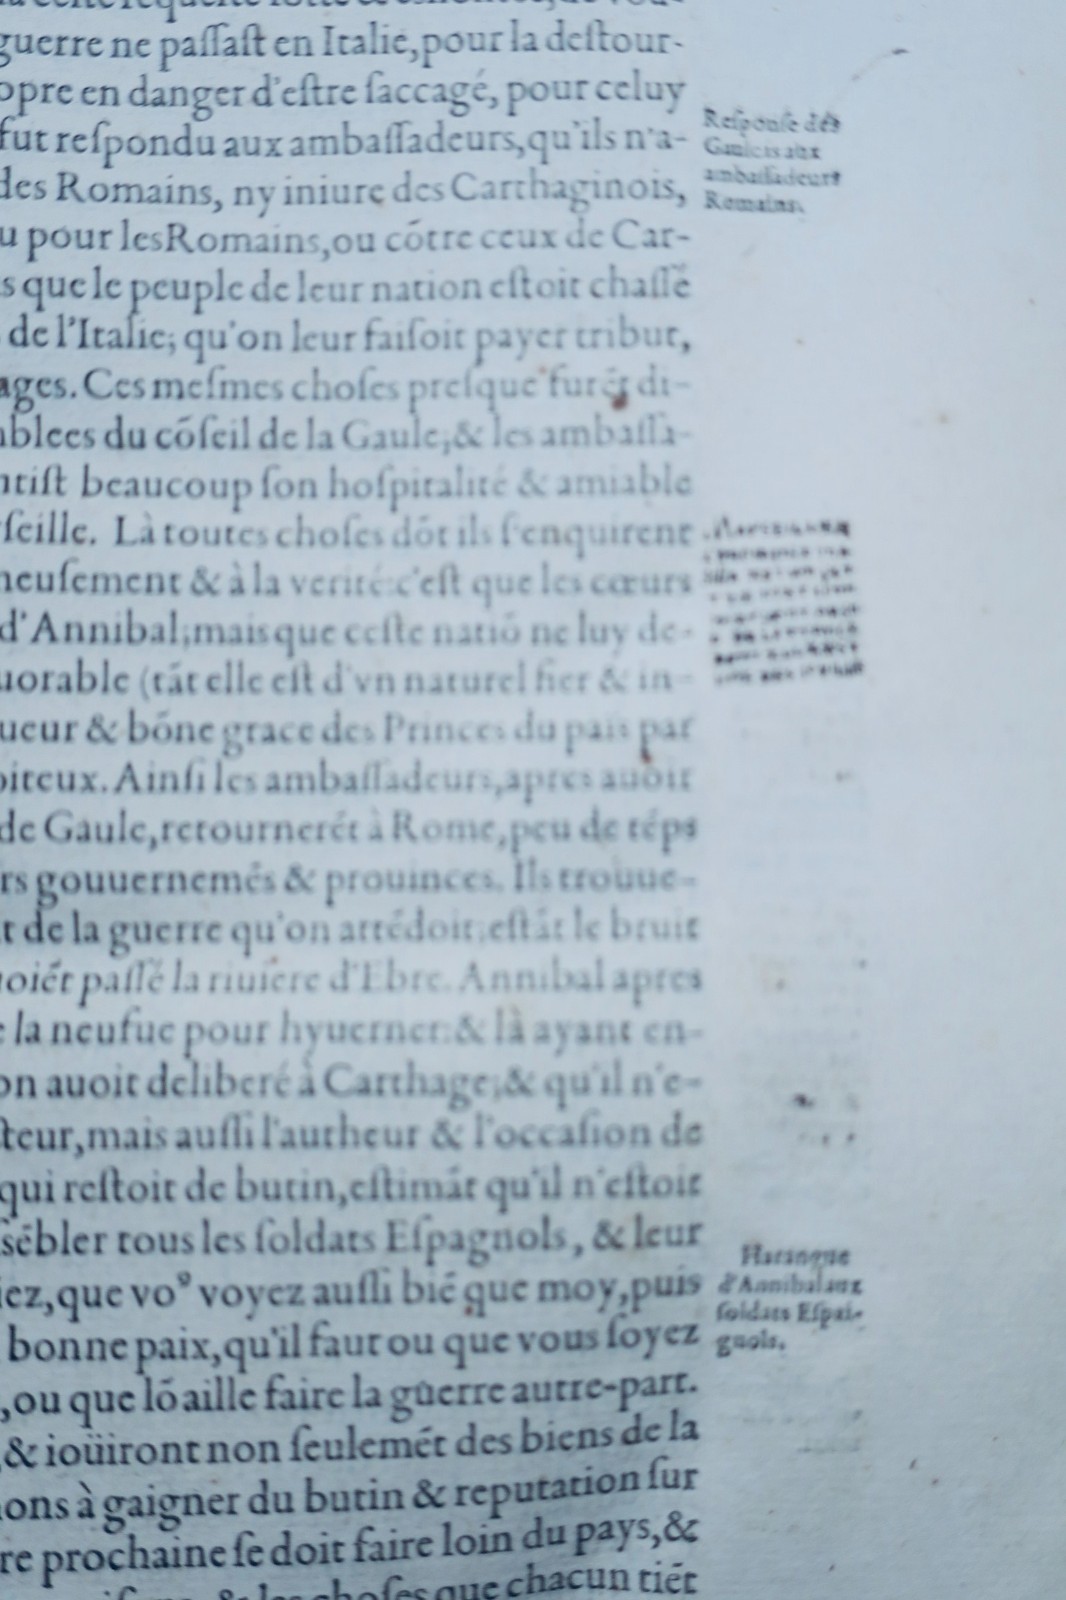 guerre ne paſſaſt en Italie, pour la deſtour-
opre en danger d'eſtre ſaccagé, pour celuy
fut reſpondu aux ambaſſadeurs, qu'ils n'a-
des Romains, ny iniure des Carthaginois,
u pour les Romains, ou cõtre ceux de Car-
s que le peuple de leur nation eſtoit chaſſé
de l'Italie; qu'on leur faiſoit payer tribut,
ages. Ces meſmes choſes preſque furẽt di-
blees du cõſeil de la Gaule; & les ambaſſa-
ntiſt beaucoup ſon hoſpitalité & amiable
rſeille. Là toutes choſes dõt ils ſ'enquirent
neuſement & à la verité: c'eſt que les cœurs
d'Annibal; mais que ceſte natiõ ne luy de-
uorable (tãt elle eſt d'vn naturel fier & in-
ueur & bõne grace des Princes du païs par
oiteux. Ainſi les ambaſſadeurs, apres auoir
de Gaule, retournerẽt à Rome, peu de tẽps
rs gouuernemẽs & prouinces. Ils trouue-
t de la guerre qu'on attẽdoit; eſtãt le bruit
oiẽt paſſé la riuiere d'Ebre. Annibal apres
la neufue pour hyuerner: & là ayant en-
on auoit deliberé à Carthage; & qu'il n'e-
ſteur, mais auſſi l'autheur & l'occaſion de
qui reſtoit de butin, eſtimãt qu'il n'eſtoit
sẽbler tous les ſoldats Eſpagnols, & leur
iez, que voꝰ voyez auſſi biẽ que moy, puis
bonne paix, qu'il faut ou que vous ſoyez
, ou que lõ aille faire la guerre autre-part.
, & ioüiront non ſeulemẽt des biens de la
ons à gaigner du butin & reputation ſur
re prochaine ſe doit faire loin du pays, &
& les choſes que chacun tiẽt
Reſponſe des
Gaulois aux
ambaſſadeurs
Romains.
Harangue
d'Annibal aux
ſoldats Eſpai-
gnols.